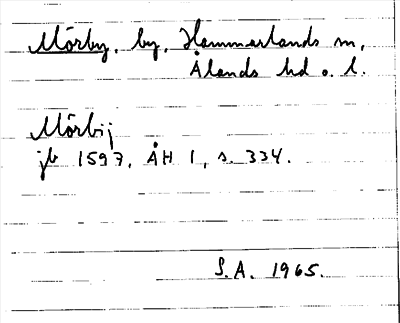 Mörby, by, Hammarlands sn,
Ålands hd o. l.
Mörbij
jb 1597, ÅH 1, s. 334.
S.A. 1965.